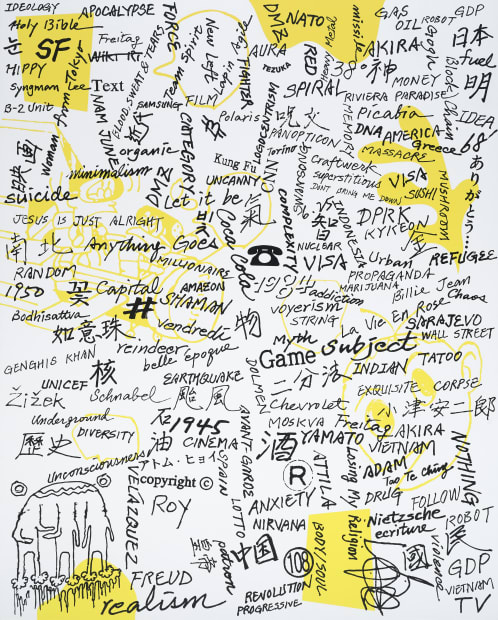 IDEOLOGY
APOCALYPSE
FORCE
DMZ
NATO
missile
GAS
OIL
ROBOT
GDP
Holy Bible
Freitag
Spirit
New Left
Lupin
Agile
AURA
TEZUKA
RED
Metal
AKIRA
Google
日本
SF
Wiki
HIPPY
Tokyo
From
Syngman Lee
Text
BLOOD, SWEAT & TEARS
Team
FIGHTER
SPIRAL
38
神
MONEY
fuel
明
Book
Chun
B-2 Unit
NAM JUNE
SAMSUNG
FILM
Polaris
RIVIERA PARADISE
Picabia
IDEA
woman
organic
CATEGORY
PANOPTICON
MEMORY
DNA
AMERICA
Greece
68
ありがとう...
Kung Fu
Torino
Craftwerk
MASSACRE
minimalism
DMZ
UNCANNY
CNN
superstitious
VISA
MUSHROOM
suicide
Let it be
GNOSANOMO
DON'T BRING ME DOWN
SUSHI
JESUS IS JUST ALRIGHT
Coca Cola
COMPLEXITY
VS
INDONESIA
DPRK
KYIKEON
南北
Anything Goes
NUCLEAR
VISA
Urban
REFUGEE
RANDOM
MILLIONAIRE
1984
PROPAGANDA
1950
Capital
AMAZON
addiction
MARIJUANA
Billie Jean
Chaos
#
SHAMAN
voyerism
Bodhisattva
vendredi
物
STRING
La Vie En Rose
SARAJEVO
如意珠
Myth
WALL STREET
GENGHIS KHAN
reindeer
belle époque
Game
subject
核
DOLMEN
二分法
INDIAN
TATOO
UNICEF
EARTHQUAKE
EXQUISITE CORPSE
Žižek
Schnabel
颱風
Chevrolet
小津安二郎
Underground
石油
1945
MOSKVA
Freitag
AKIRA
DIVERSITY
CINEMA
AVANT-GARDE
酒
YAMATO
VIETNAM
NOTHING
歷史
アトム・ヒョイ
SPAIN
Losing My Religion
ADAM
Tao Te Ching
Unconsciousness
copyright ©
®
ATTILA
DRUG
FOLLOW
VELAZQUEZ
Roy
LOTTO
ANXIETY
Nietzsche
ROBOT
NIRVANA
ecriture
中国
BODY/SOUL
國
violence
GDP
108
patron
FREUD
REVOLUTION
VIETNAM
realism
PROGRESSIVE
TV